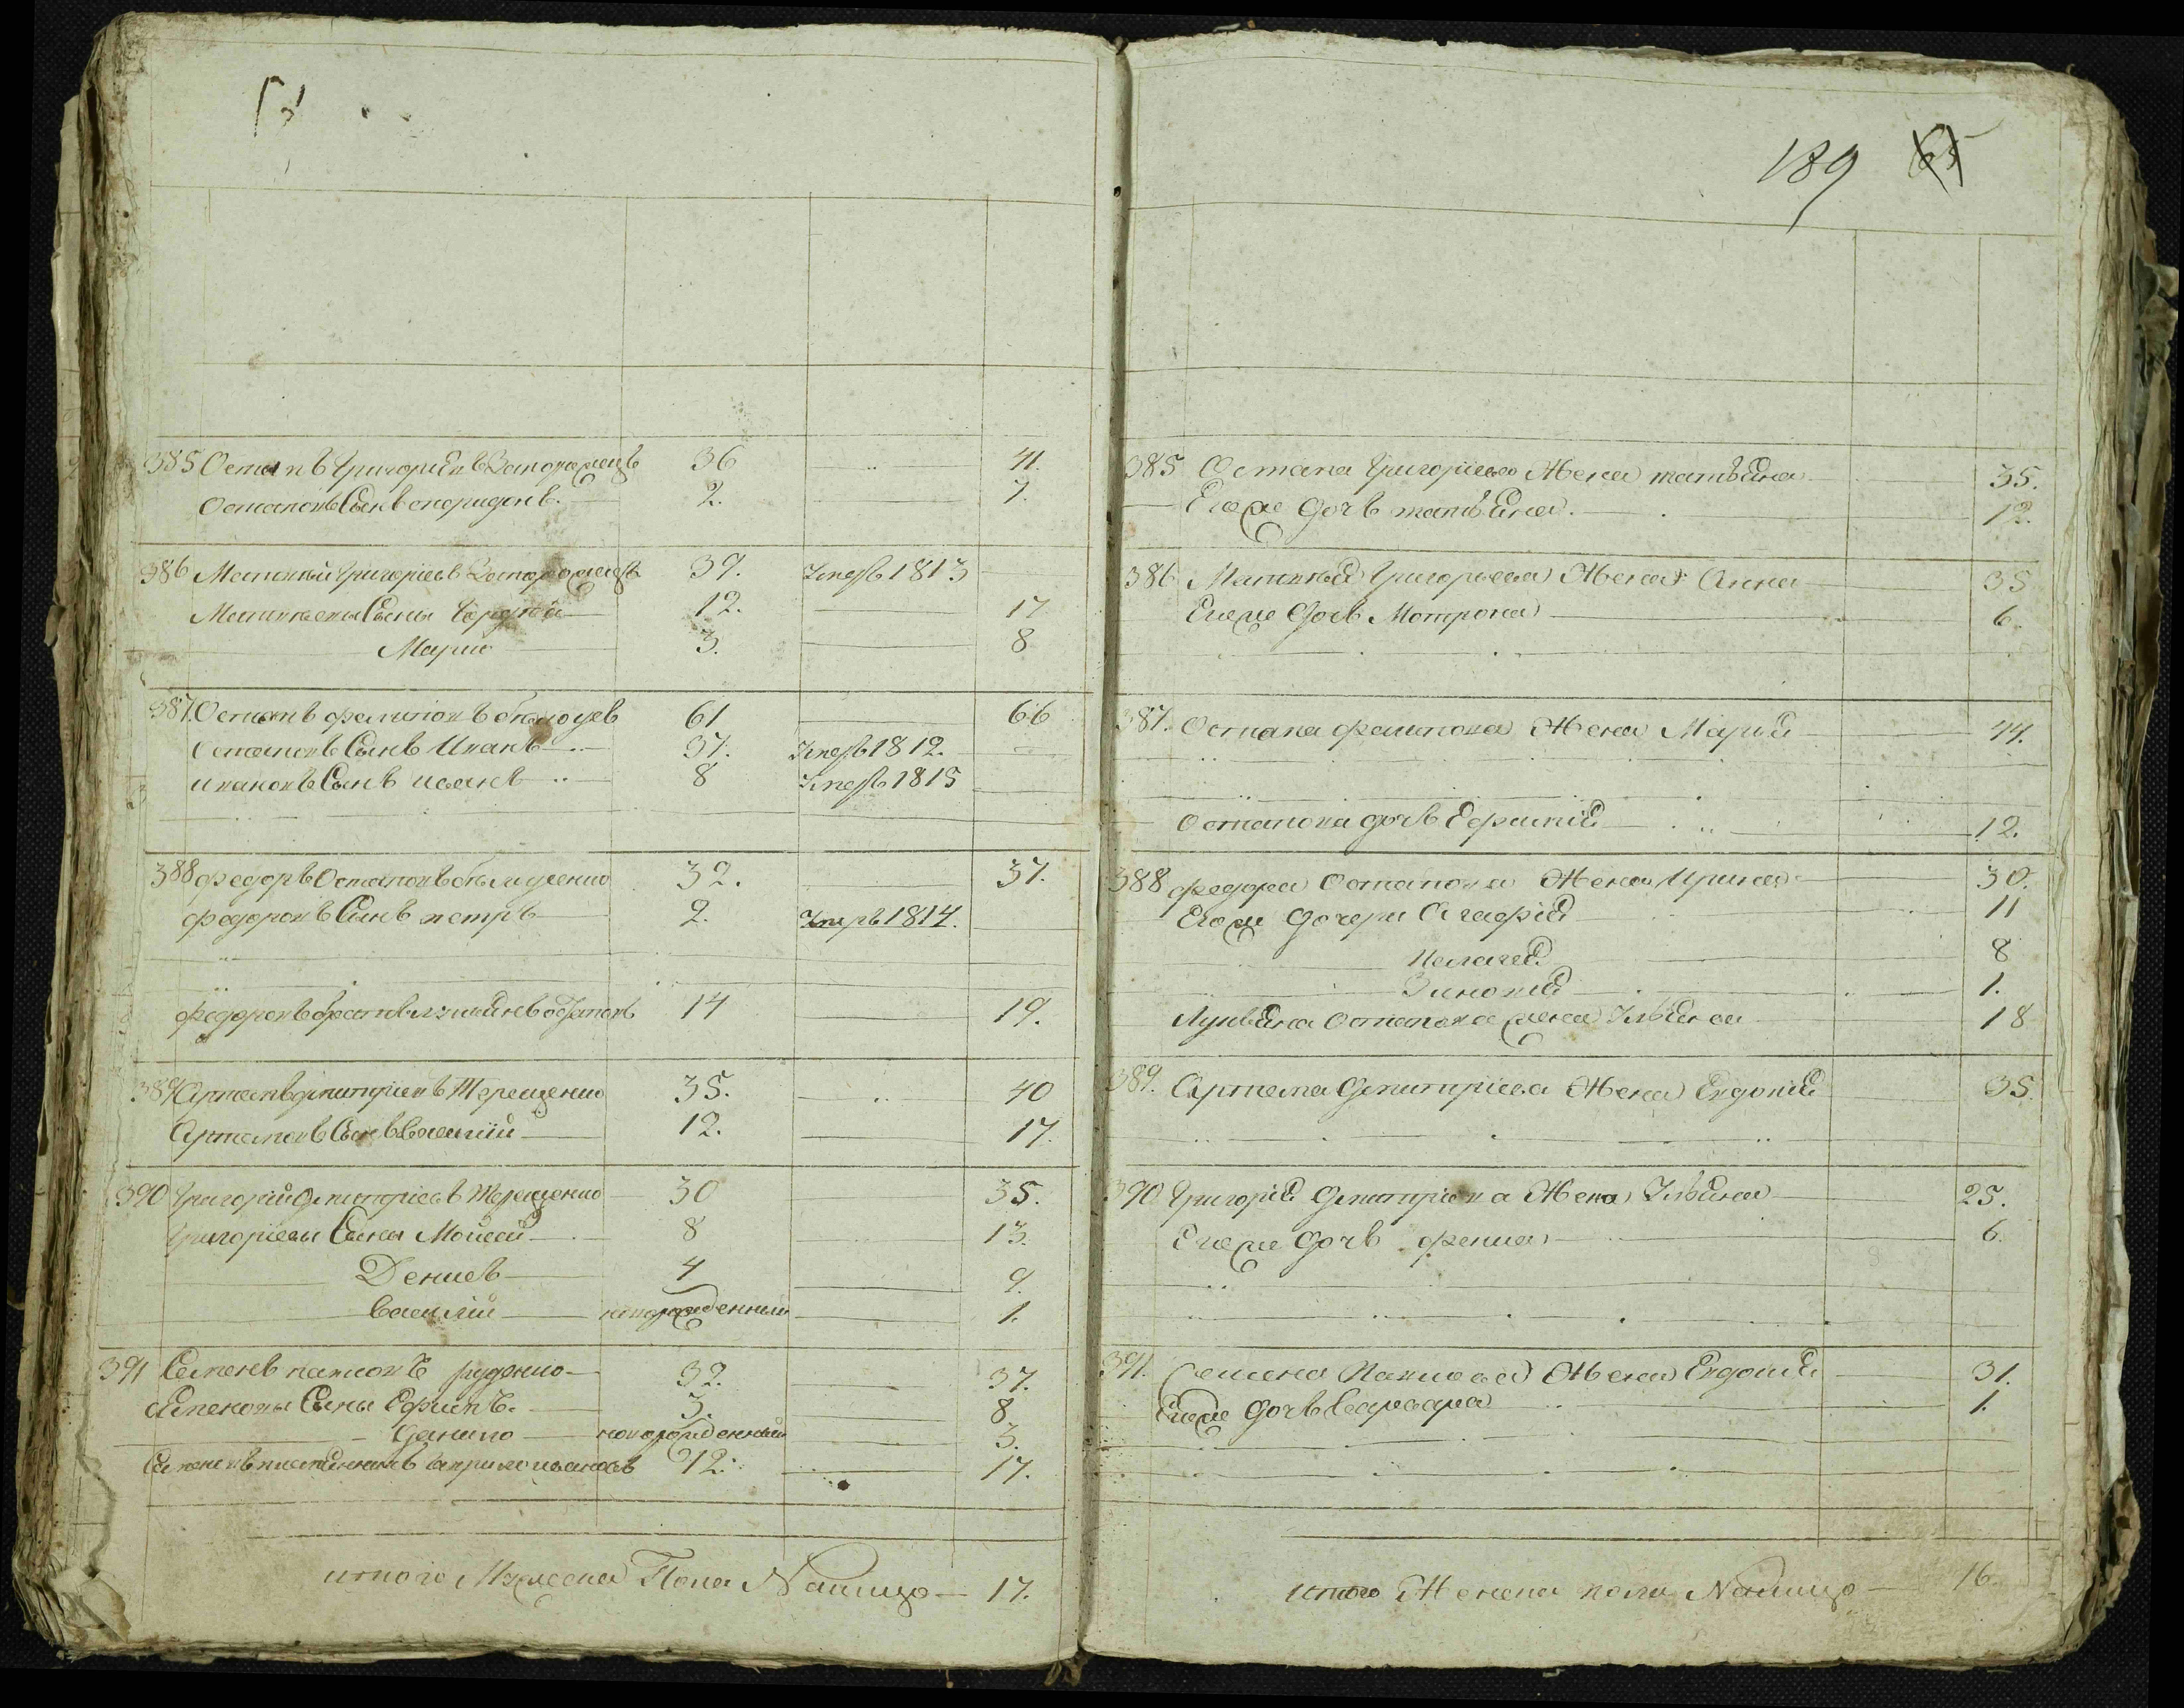 189 65
385 Остапъ Григориевъ Запорожецъ 36 — 41.
Остаповъ Сынъ спиридонъ. 2. — 7.
386 Матвей Григориевъ Запорожецъ 39. умеръ 1813 —
Матвеевы Сыны Гордей 12. — 17
Марко 3. — 8
387. Остапъ филиповъ 61 — 66
Остаповъ Сынъ Иванъ 37. умеръ 1812. —
ивановъ Сынъ иванъ 8 умеръ 1815 —
388 федоръ Остаповъ 32. — 37.
федоровъ Сынъ петръ 2. умеръ 1814. —
федоровъ братъ Остаповъ 14 — 19.
389 Артемъ дмитриевъ Терещенко 35. — 40
Артемовъ Сынъ Василий 12. — 17.
390 Григорий Дмитриевъ Терещенко 30 — 35.
Григориевы Сыны Моисей 8 — 13.
Денисъ 4 — 9.
Василий новорожденный — 1.
391 Семенъ павловъ руденко 32. — 37.
Семеновы Сыны Ефимъ. 3. — 8.
Данило новорожденный — 3.
Семеновъ племянникъ ивановъ 12. — 17.
итого Мужеска Пола Налицо — 17.
385 Остапа Григориева Жена татьяна 35.
Егоже дочь татьяна. 12.
386 Матвея Григорьева Жена Анна 35
Егоже дочь Мотрона 6.
387. Остапа филипова Жена Марья 44.
Остапова дочь Ефимия 12.
388 федора Остапова Жена Ирина 30.
Егоже дочери Агафия 11
Пелагея 8
Зиновия 1.
Лукьяна Остапова жена Ульяна 18
389. Артема Дмитриева Жена Евдокия 35.
390 Григория Дмитриева Жена Ульяна 25.
Егоже дочь фенна 6.
391. Семена Павлова Жена Евдокия 31.
Егоже дочь варвара 1.
итого Женска пола Налицо — 16.